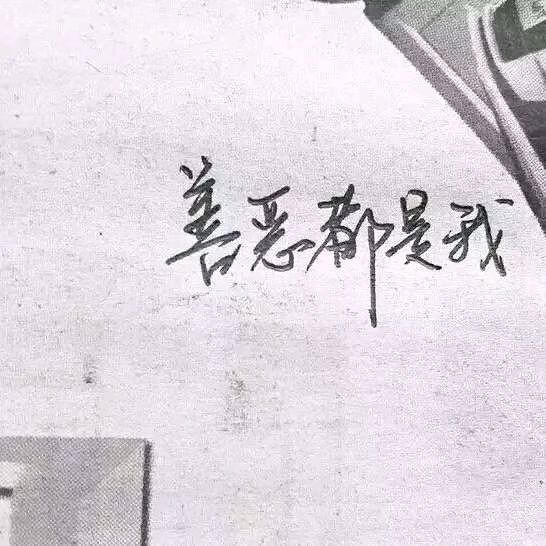 善恶都是我